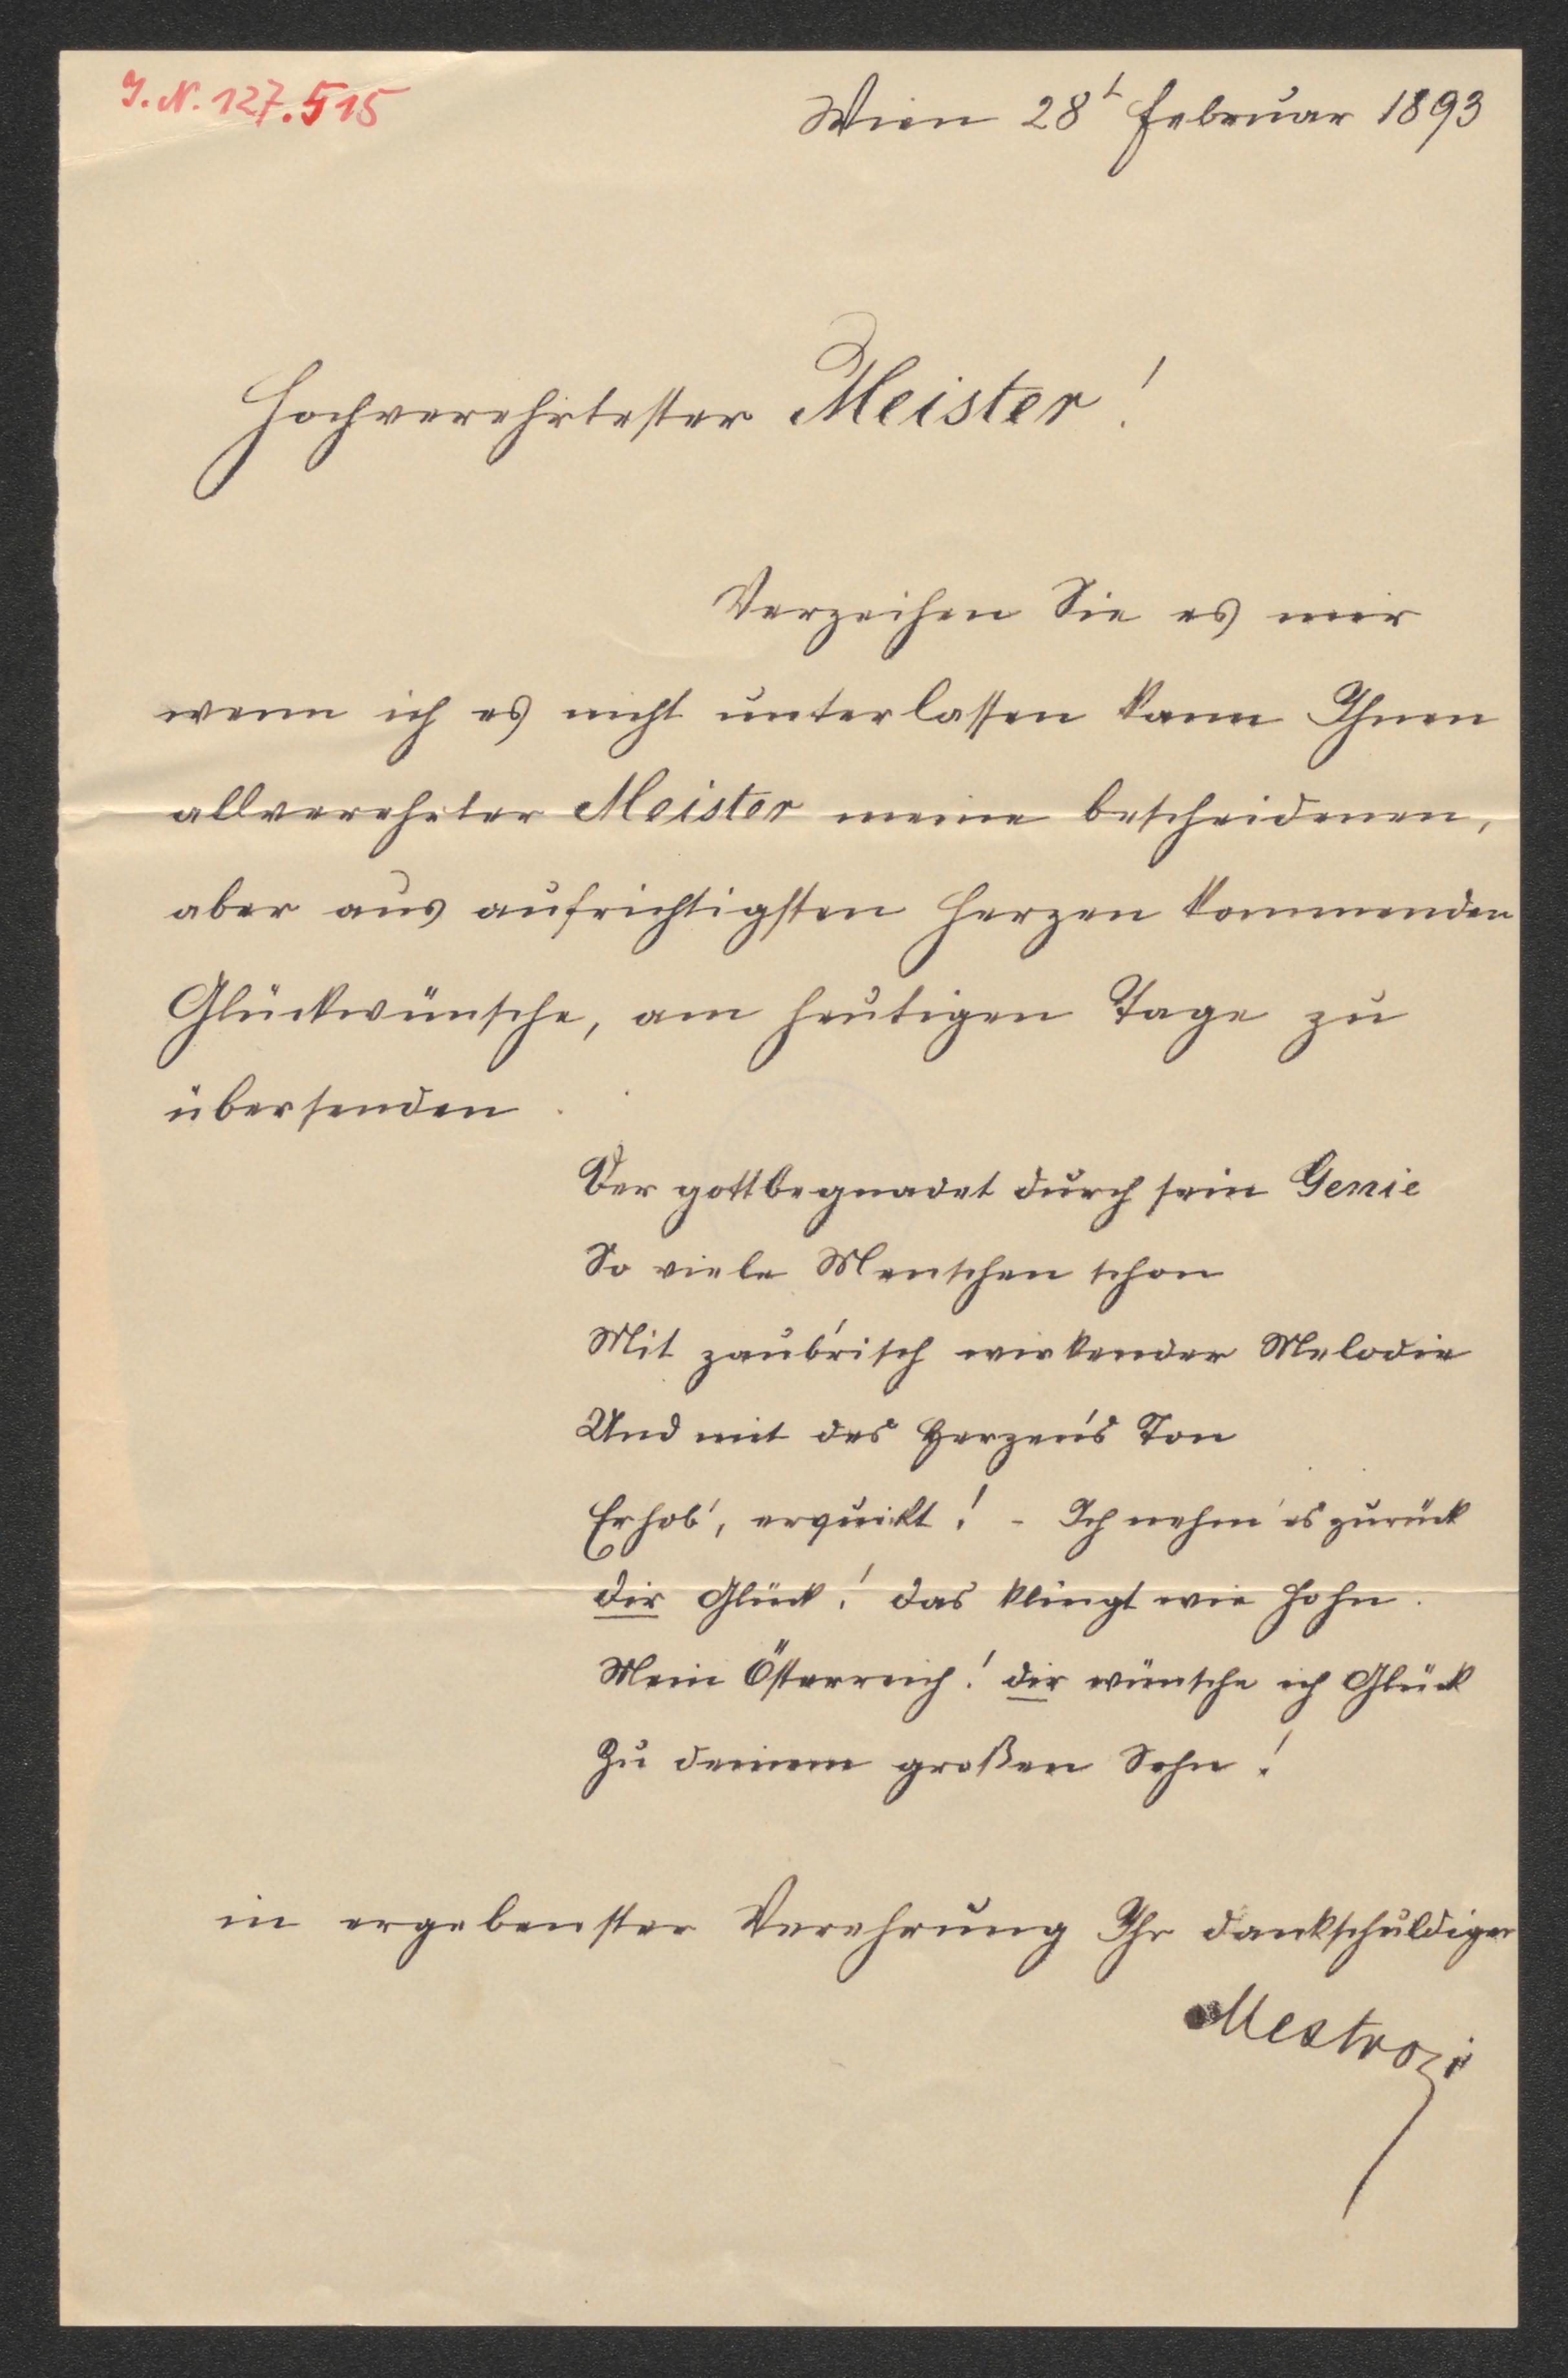 J. N. 127.515
Wien 28t Februar 1893
Hochverehrtester Meister!
Verzeihen Sie es mir
wenn ich es nicht unterlassen kann Ihnen
allverehrter Meister meine bescheidenen,
aber aus aufrichtigsten Herzen kommenden
Glückwünsche, am heutigen Tage zu
übersenden.
Der gottbegnadet durch sein Genie
So viele Menschen schon
Mit zaub'risch wirkender Melodie
Und mit des Herzen's Ton
Erhob', erquickt! - Ich nehm' es zurück
dir Glück! das klingt wie Hohn.
Mein Österreich! dir wünsche ich Glück
Zu deinem großen Sohn!
in ergebenster Verehrung Ihr dankschuldiger
Mestrozi